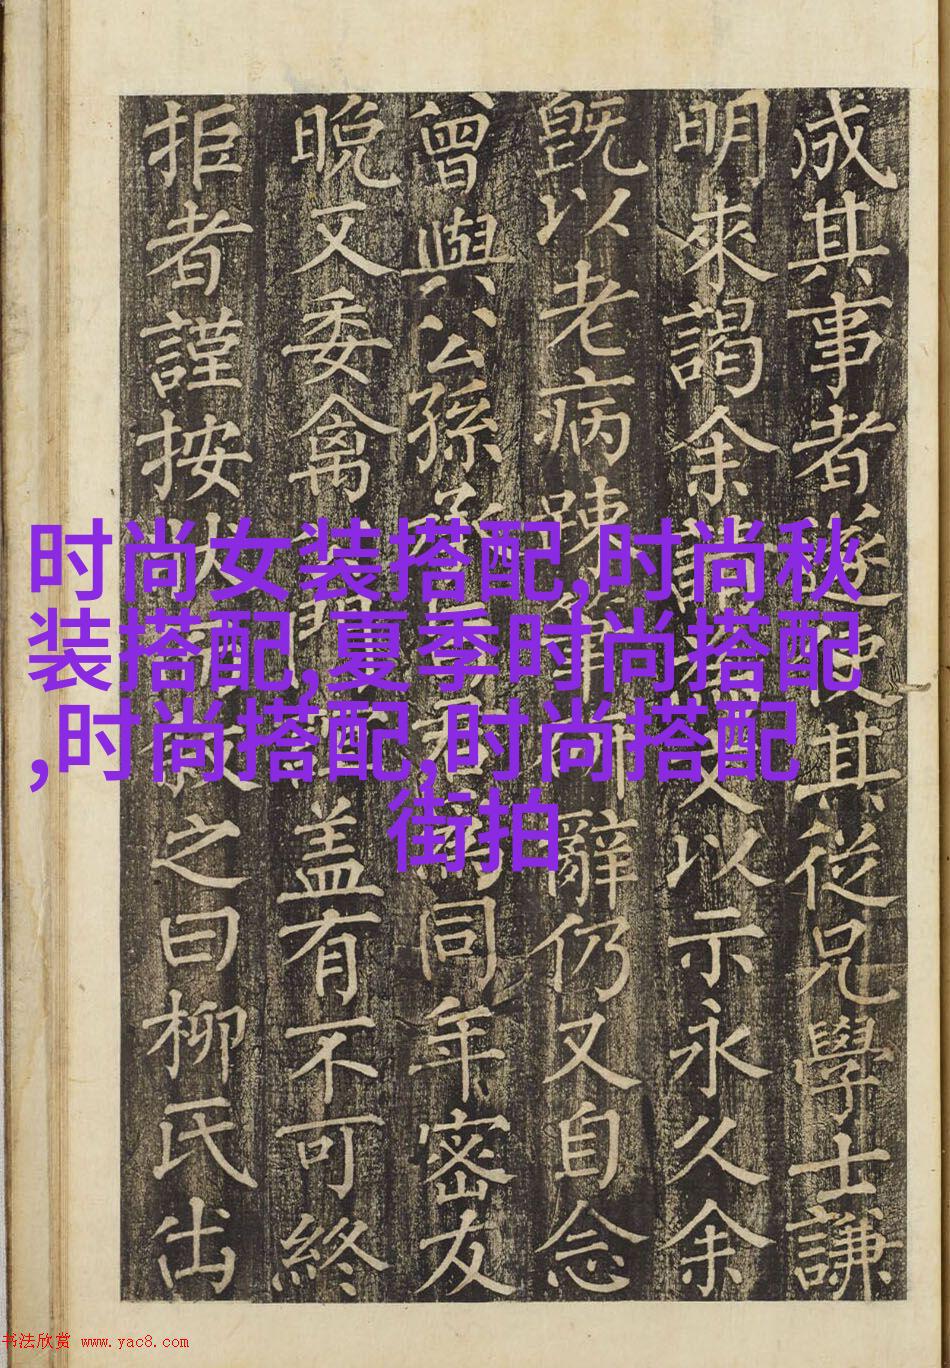 成其事者遂使其從兄學士謙
明來謁余請文以示永久余
旣以老病踈筆研辭仍又自念
曾與公孫同年密友
晚又委禽盖有不可終
拒者謹按狀敘之曰柳氏出
时尚女装搭配,时尚秋
装搭配,夏季时尚搭配
,时尚搭配,时尚搭配
街拍
书法欣赏 www.yac8.com